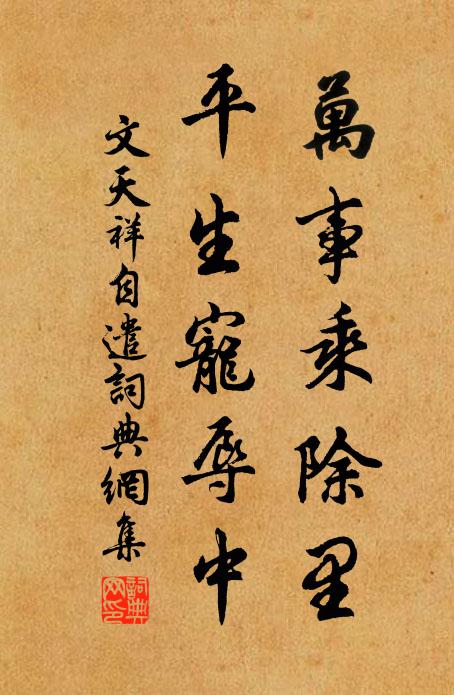 萬事乘除里
平生寵辱中
文天祥自遣詞典網集
詞典網印